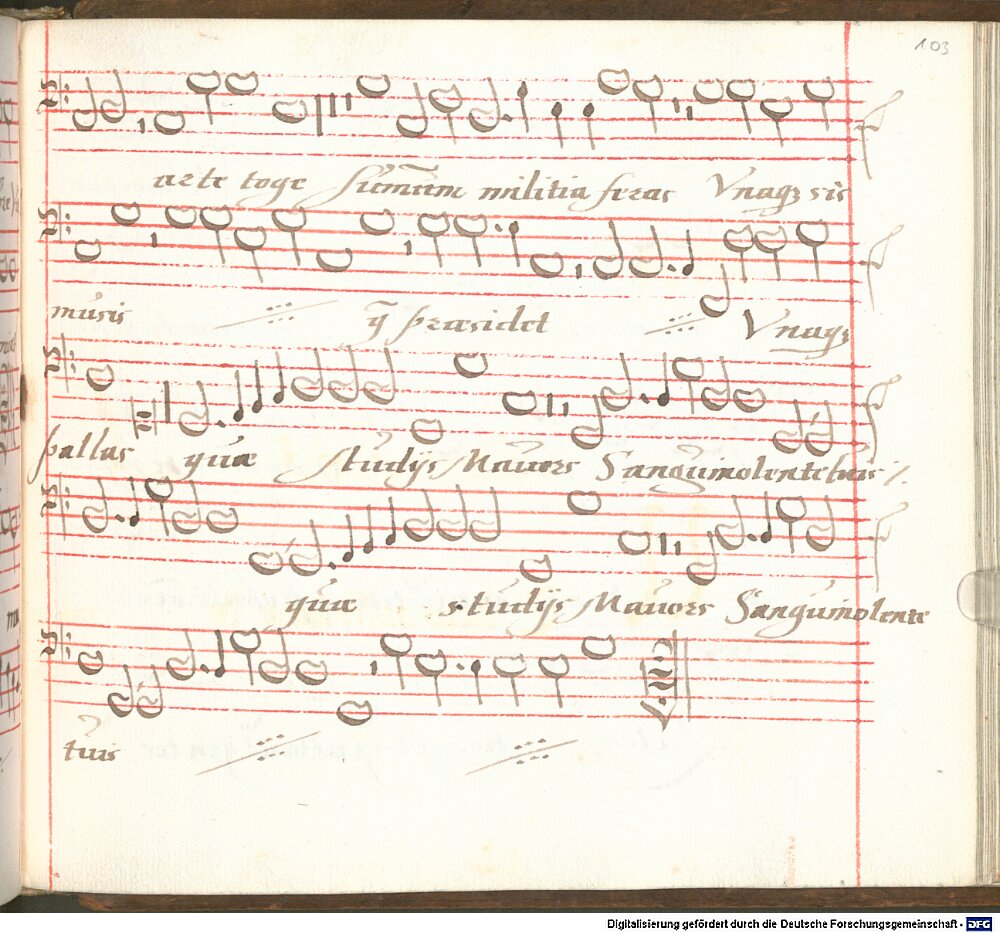 103
arte togæ sum̄um militia feras Vnaq₃ sis
musis ꝗ̄ præsidet Vnaq₃
pallas quæ studijs Mauors Sanguinolente tuis ⁒
quæ studijs Mauors Sanguinolente
tuis
Digitalisierung gefördert durch die Deutsche Forschungsgemeinschaft - DFG